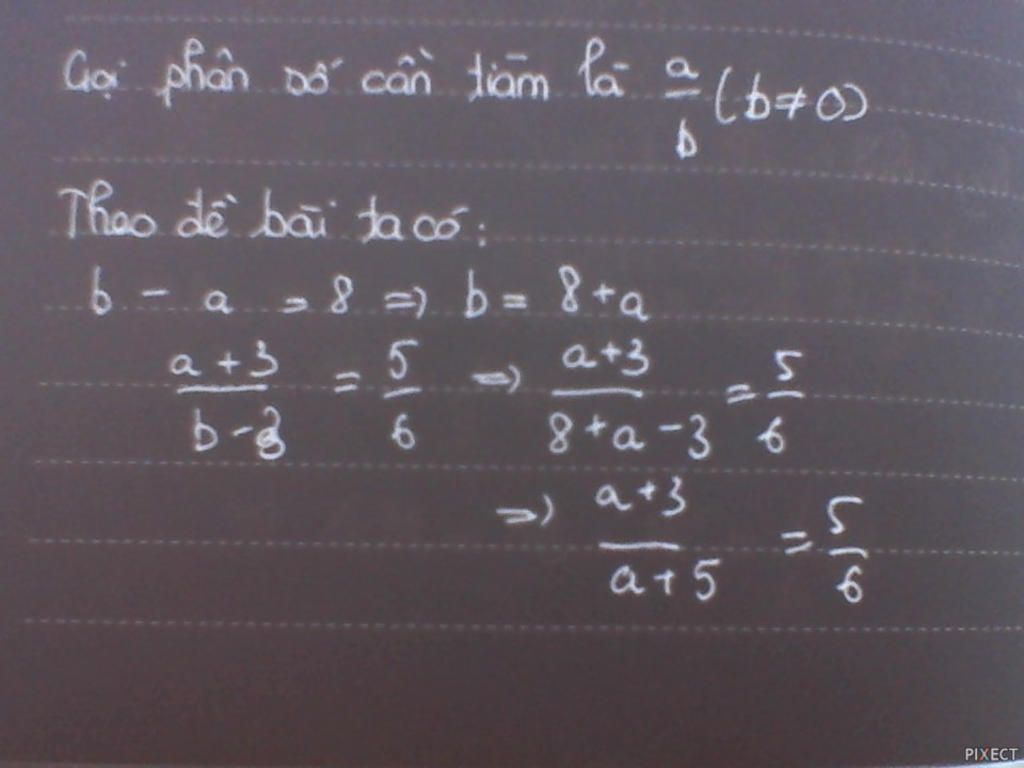 Gọi phân số cần tìm là a/b (b ≠ 0)
Theo đề bài ta có:
b - a = 8 => b = 8 + a
a + 3 / b - 3 = 5/6 => a + 3 / 8 + a - 3 = 5/6
=> a + 3 / a + 5 = 5/6
PIXECT